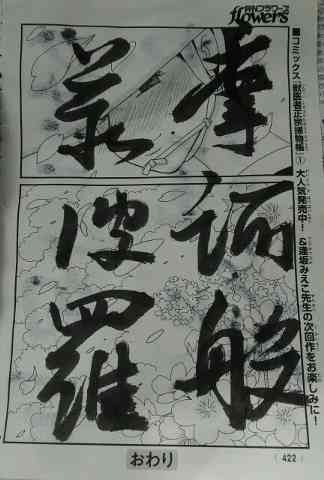 月刊フラワーズ
flowers
■コミックス『獣医者正宗捕物帳』① 大人気発売中! &逢坂みえこ先生の次回作をお楽しみに!
摩訶般
若波羅
おわり
(422)